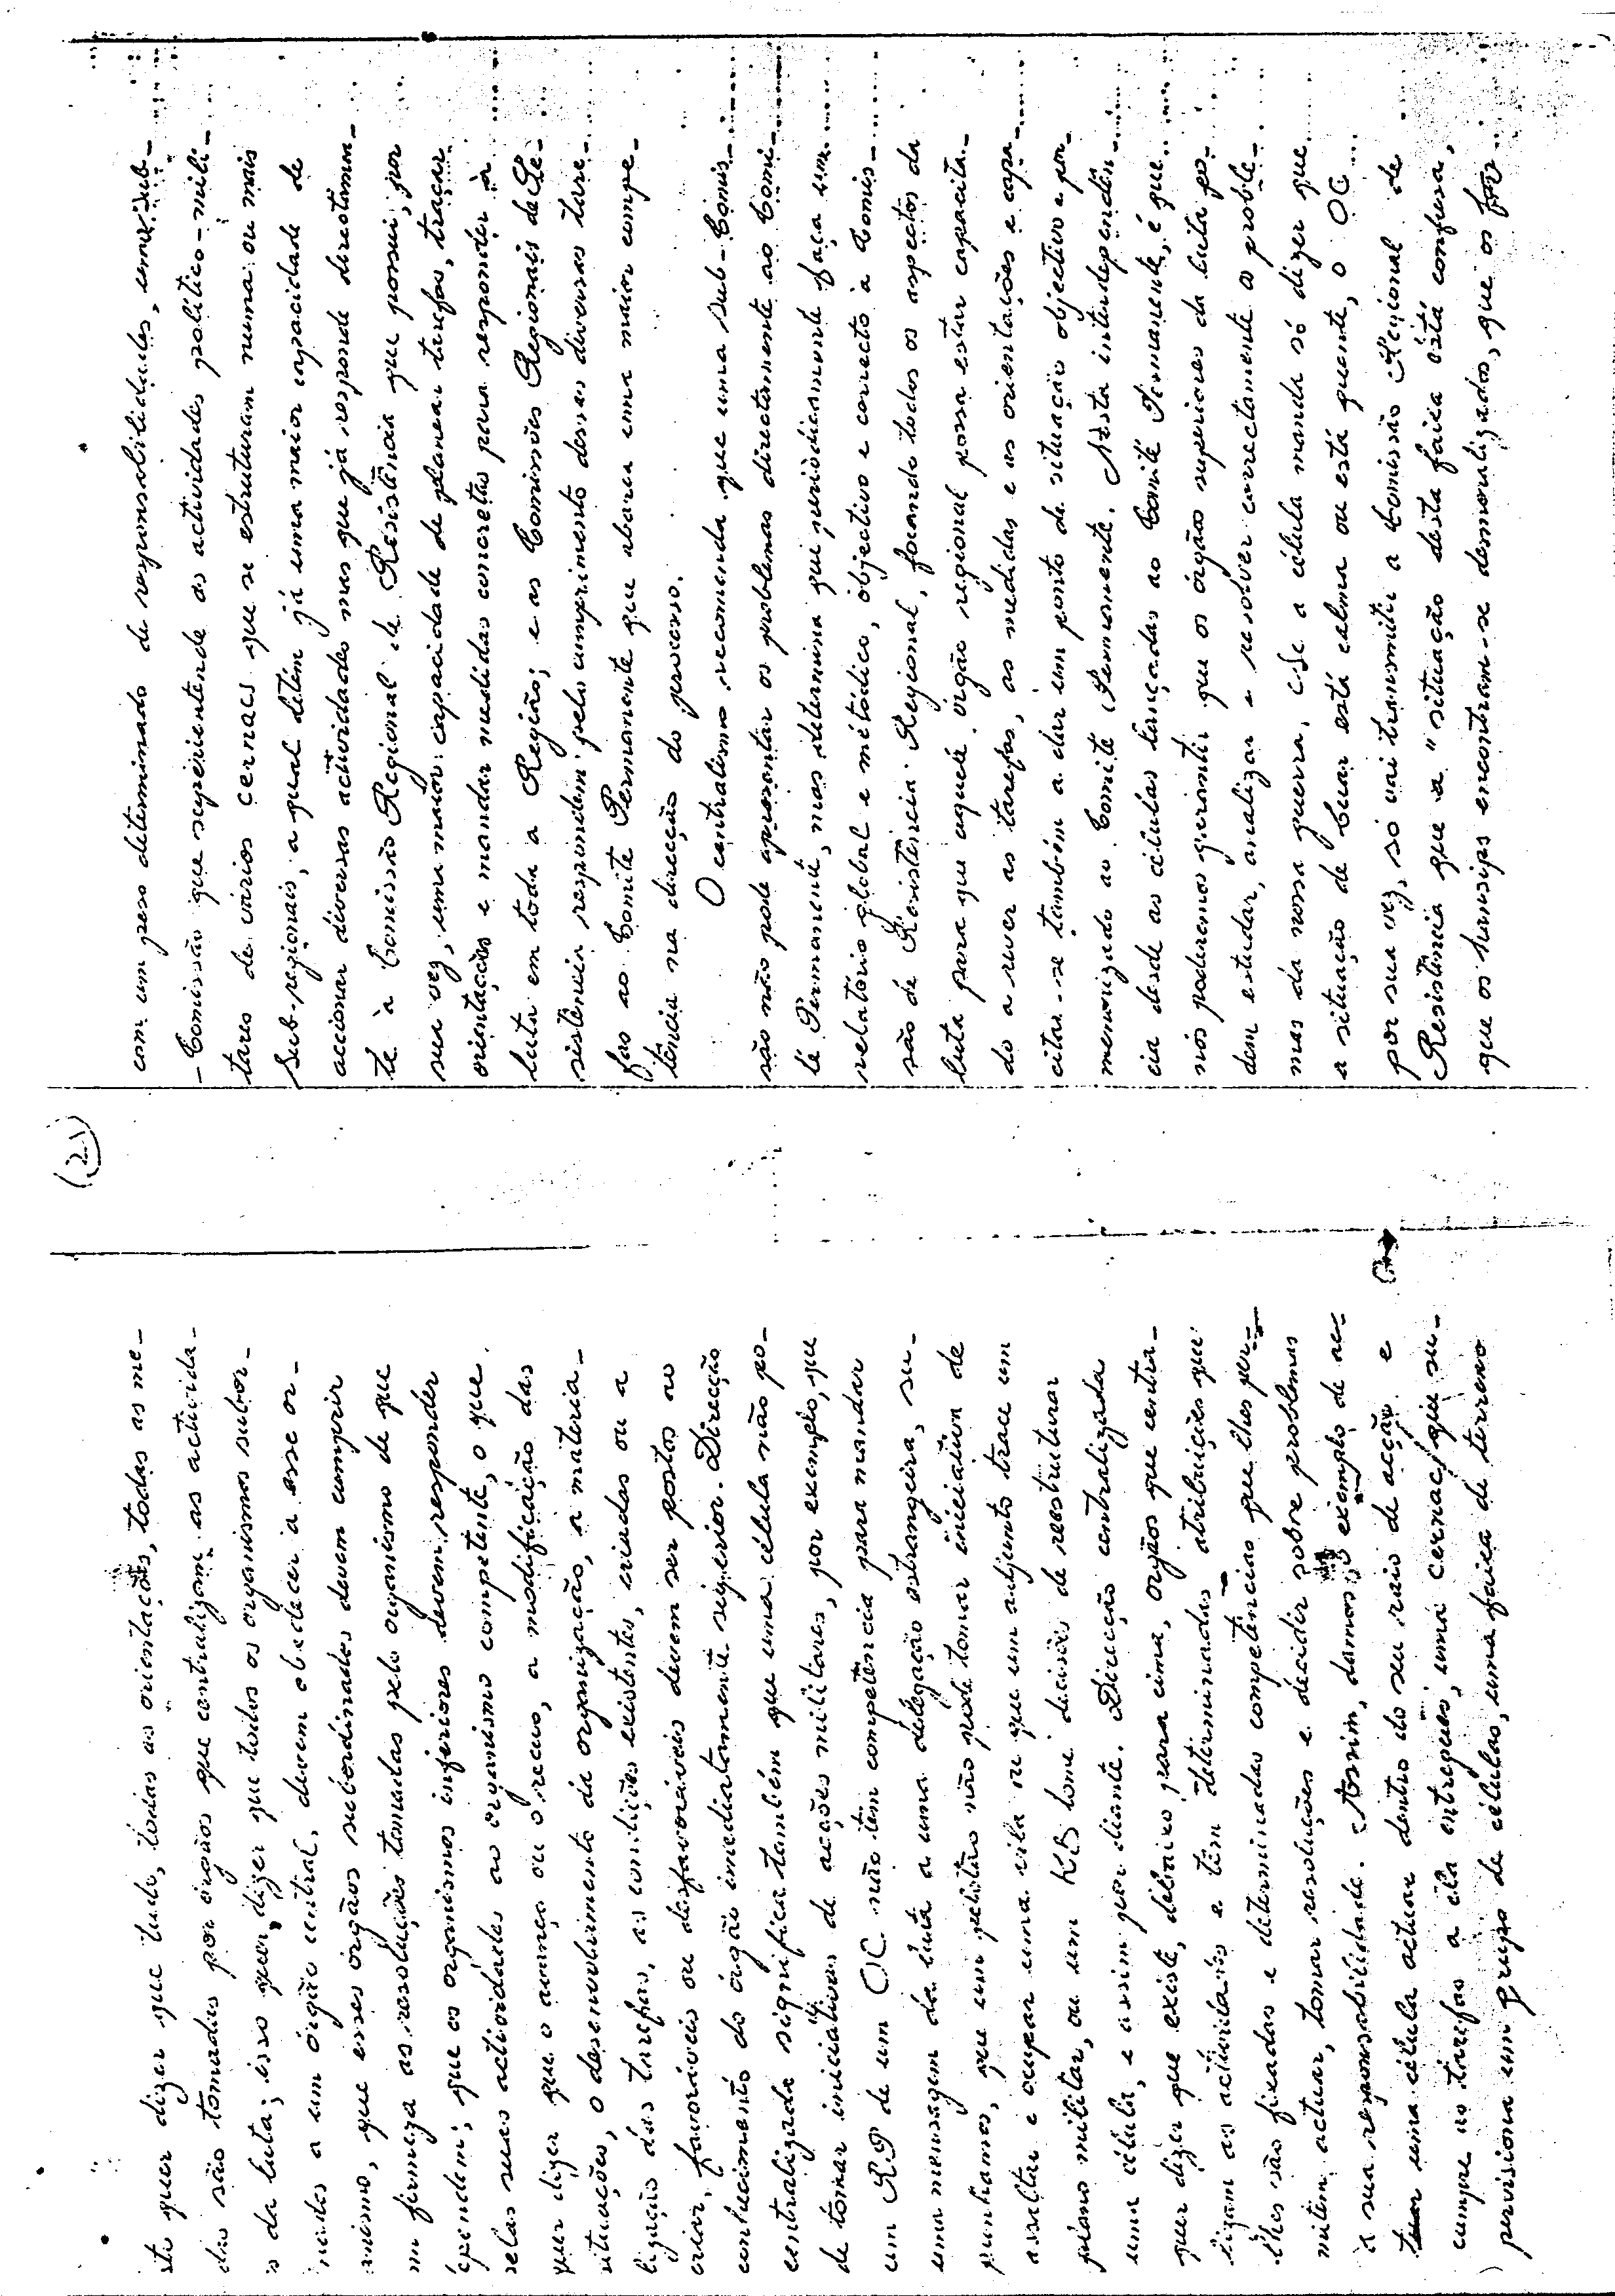 sto quer dizer que tudo, todas as orientações, todas as me-
das são tomadas por órgãos que centralizam as activida-
s da luta; isso quer dizer que todos os organismos subor-
nados a um órgão central, devem obedecer a esse or-
anismo, que esses órgãos subordinados devem cumprir
m firmeza as resoluções tomadas pelo organismo de que
ependem; que os organismos inferiores devem responder
pelas suas actividades ao organismo competente, o que
quer dizer que o avanço ou o recuo, a modificação das
situações, o desenvolvimento da organização, a materia-
lização das tarefas, as condições existentes, criadas ou a
criar, favoráveis ou desfavoráveis devem ser postos ao
conhecimento do órgão imediatamente superior. Direcção
centralizada significa também que uma célula não po-
de tomar iniciativas de acções militares, por exemplo, que
um RP de um OC não tem competência para mandar
uma mensagem da luta a uma delegação estrangeira, su-
ponhamos, que um pelotão não pode tomar iniciativa de
assaltar e ocupar uma vila ou que um adjunto trace um
plano militar, ou um KB tome decisões de reestruturar
uma célula, e assim por diante. Direcção centralizada
quer dizer que existe, debaixo para cima, orgãos que centra-
lizam as actividades e têm determinadas atribuições que
lhes são fixadas e determinadas competências que lhes per-
mitem actuar, tomar resoluções e decidir sobre problemas
à sua responsabilidade. Assim, damos o exemplo de
uma célula actuar dentro do seu raio de acção e
cumpre as tarefas a ela entregues, uma cernac, que su-
pervisiona um grupo de células, uma faixa de terreno
(21)
com um peso determinado de responsabilidades, uma Sub-
-Comissão que superientende as actividades político-mili-
tares de vários cernacs que se estruturam numa ou mais
Sub-regionais, a qual detém já uma maior capacidade de
accionar diversas actividades mas que já responde directamen-
te à Comissão Regional de Resistência que possui, por
sua vez, uma maior capacidade de planear tarefas, traçar
orientações e mandar medidas concretas para responder à
luta em toda a Região; e as Comissões Regionais de Re-
sistência respondem pelo cumprimento dessas diversas tare-
fas ao Comité Permanente que abarca uma maior compe-
tência na direcção do processo.
O centralismo recomenda que uma Sub-Comis-
são não pode apresentar os problemas directamente ao Comi-
té Permanente, mas determina que periòdicamente faça um
relatório global e metódico, objectivo e correcto à Comis-
são de Resistência Regional, focando todos os aspectos da
luta para que aquele órgão regional possa estar capacita-
do a rever as tarefas, as medidas e as orientações e capa-
citar-se também a dar um ponto de situação objectivo e por-
menorizado ao Comité Permanente. Nesta interdependên-
cia desde as células lançadas ao Comité Permanente, é que
nós poderemos garantir que os órgãos superiores da luta po-
dem estudar, analizar e resolver correctamente os proble-
mas da nossa guerra. Se a célula manda só dizer que
a situação de Guar está calma ou está quente, o OC
por sua vez, só vai transmitir à Comissão Regional de
Resistência que a "situação desta faixa está confusa,
que os hansips encontram-se desmoralizados, que os